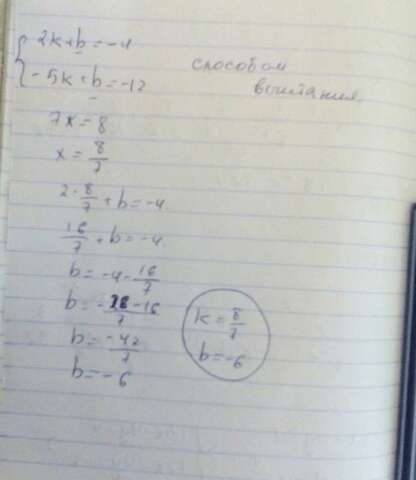 2k+b=-4
-5k+b=-12
способом
вычитания
7x=8
x=8/7
2·8/7+b=-4
16/7+b=-4
b=-4-16/7
b=-28-16/7
b=-42/7
b=-6
k=8/7
b=-6